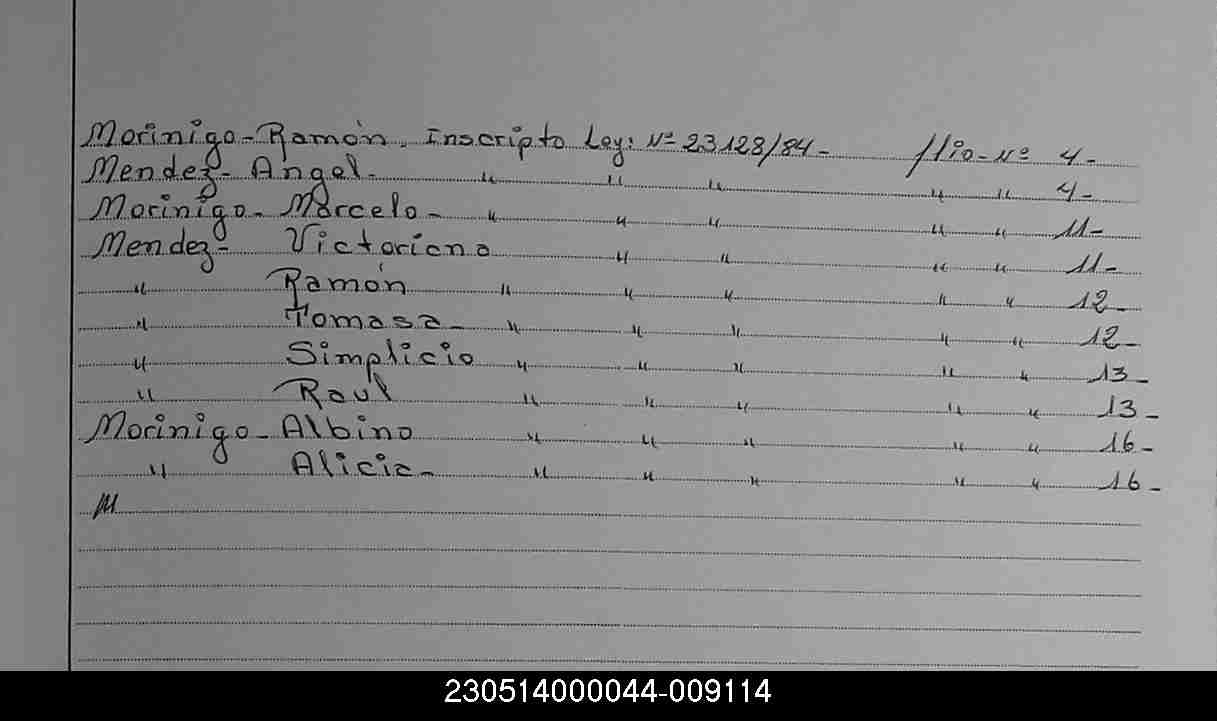 Morinigo - Ramón. Inscripto Ley: Nº 23128/84 - flio - Nº 4 -
Mendez - Angel - " " " " " 4 -
Morinigo - Marcelo - " " " " " 11 -
Mendez - Victoriano " " " " " 11 -
" Ramón " " " " " 12 -
" Tomasa - " " " " " 12 -
" Simplicio " " " " " 13 -
" Raul " " " " " 13 -
Morinigo - Albino " " " " " 16 -
" Alicia - " " " " " 16 -
230514000044-009114